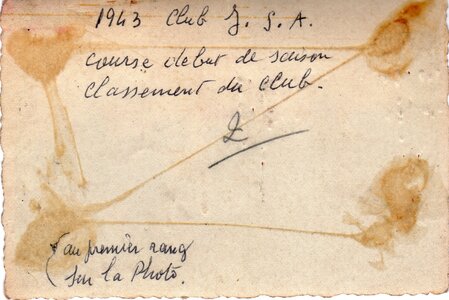 1943 Club J. S. A.
course début de saison
classement du club.
2
(au premier rang
sur la Photo.